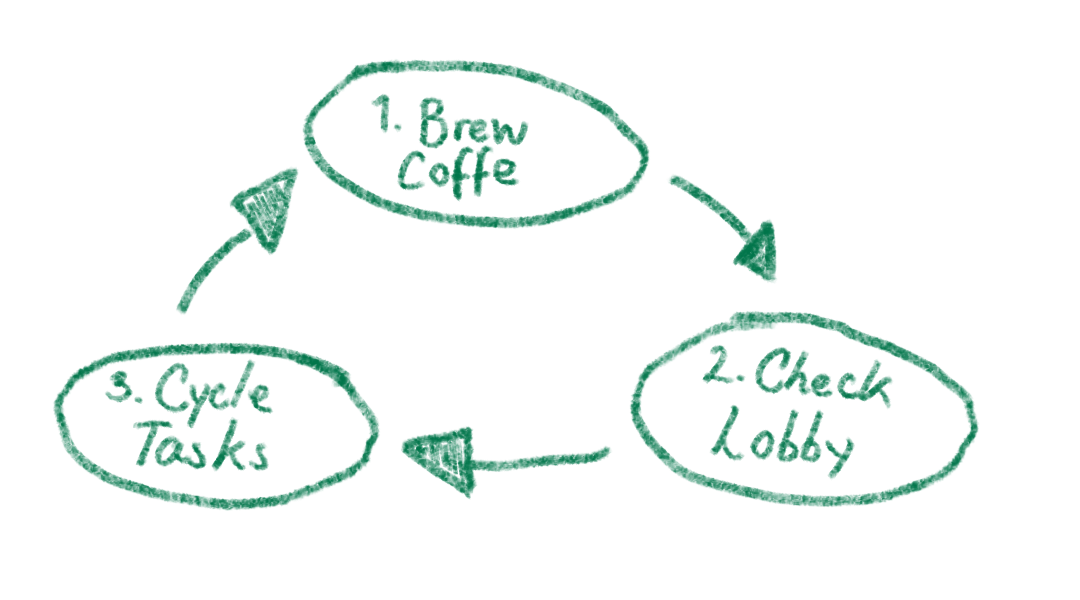 1. Brew
Coffe
2. Check
Lobby
3. Cycle
Tasks